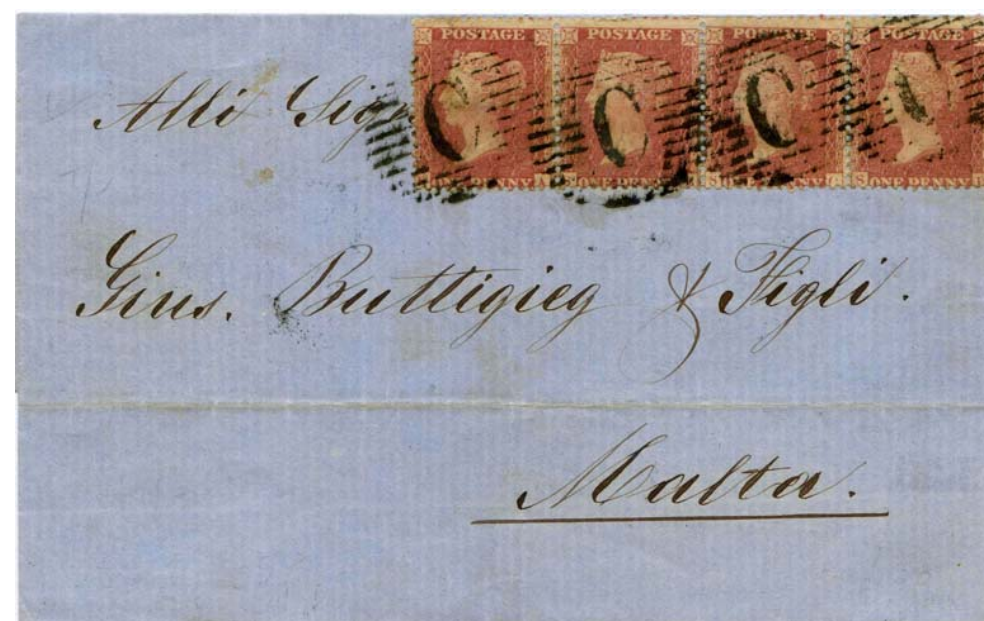 POSTAGE POSTAGE POSTAGE
C C C C
ONE PENNY ONE PENNY ONE PENNY ONE PENNY
Alli Sig
Gius. Buttigieg & Figli.
Malta.